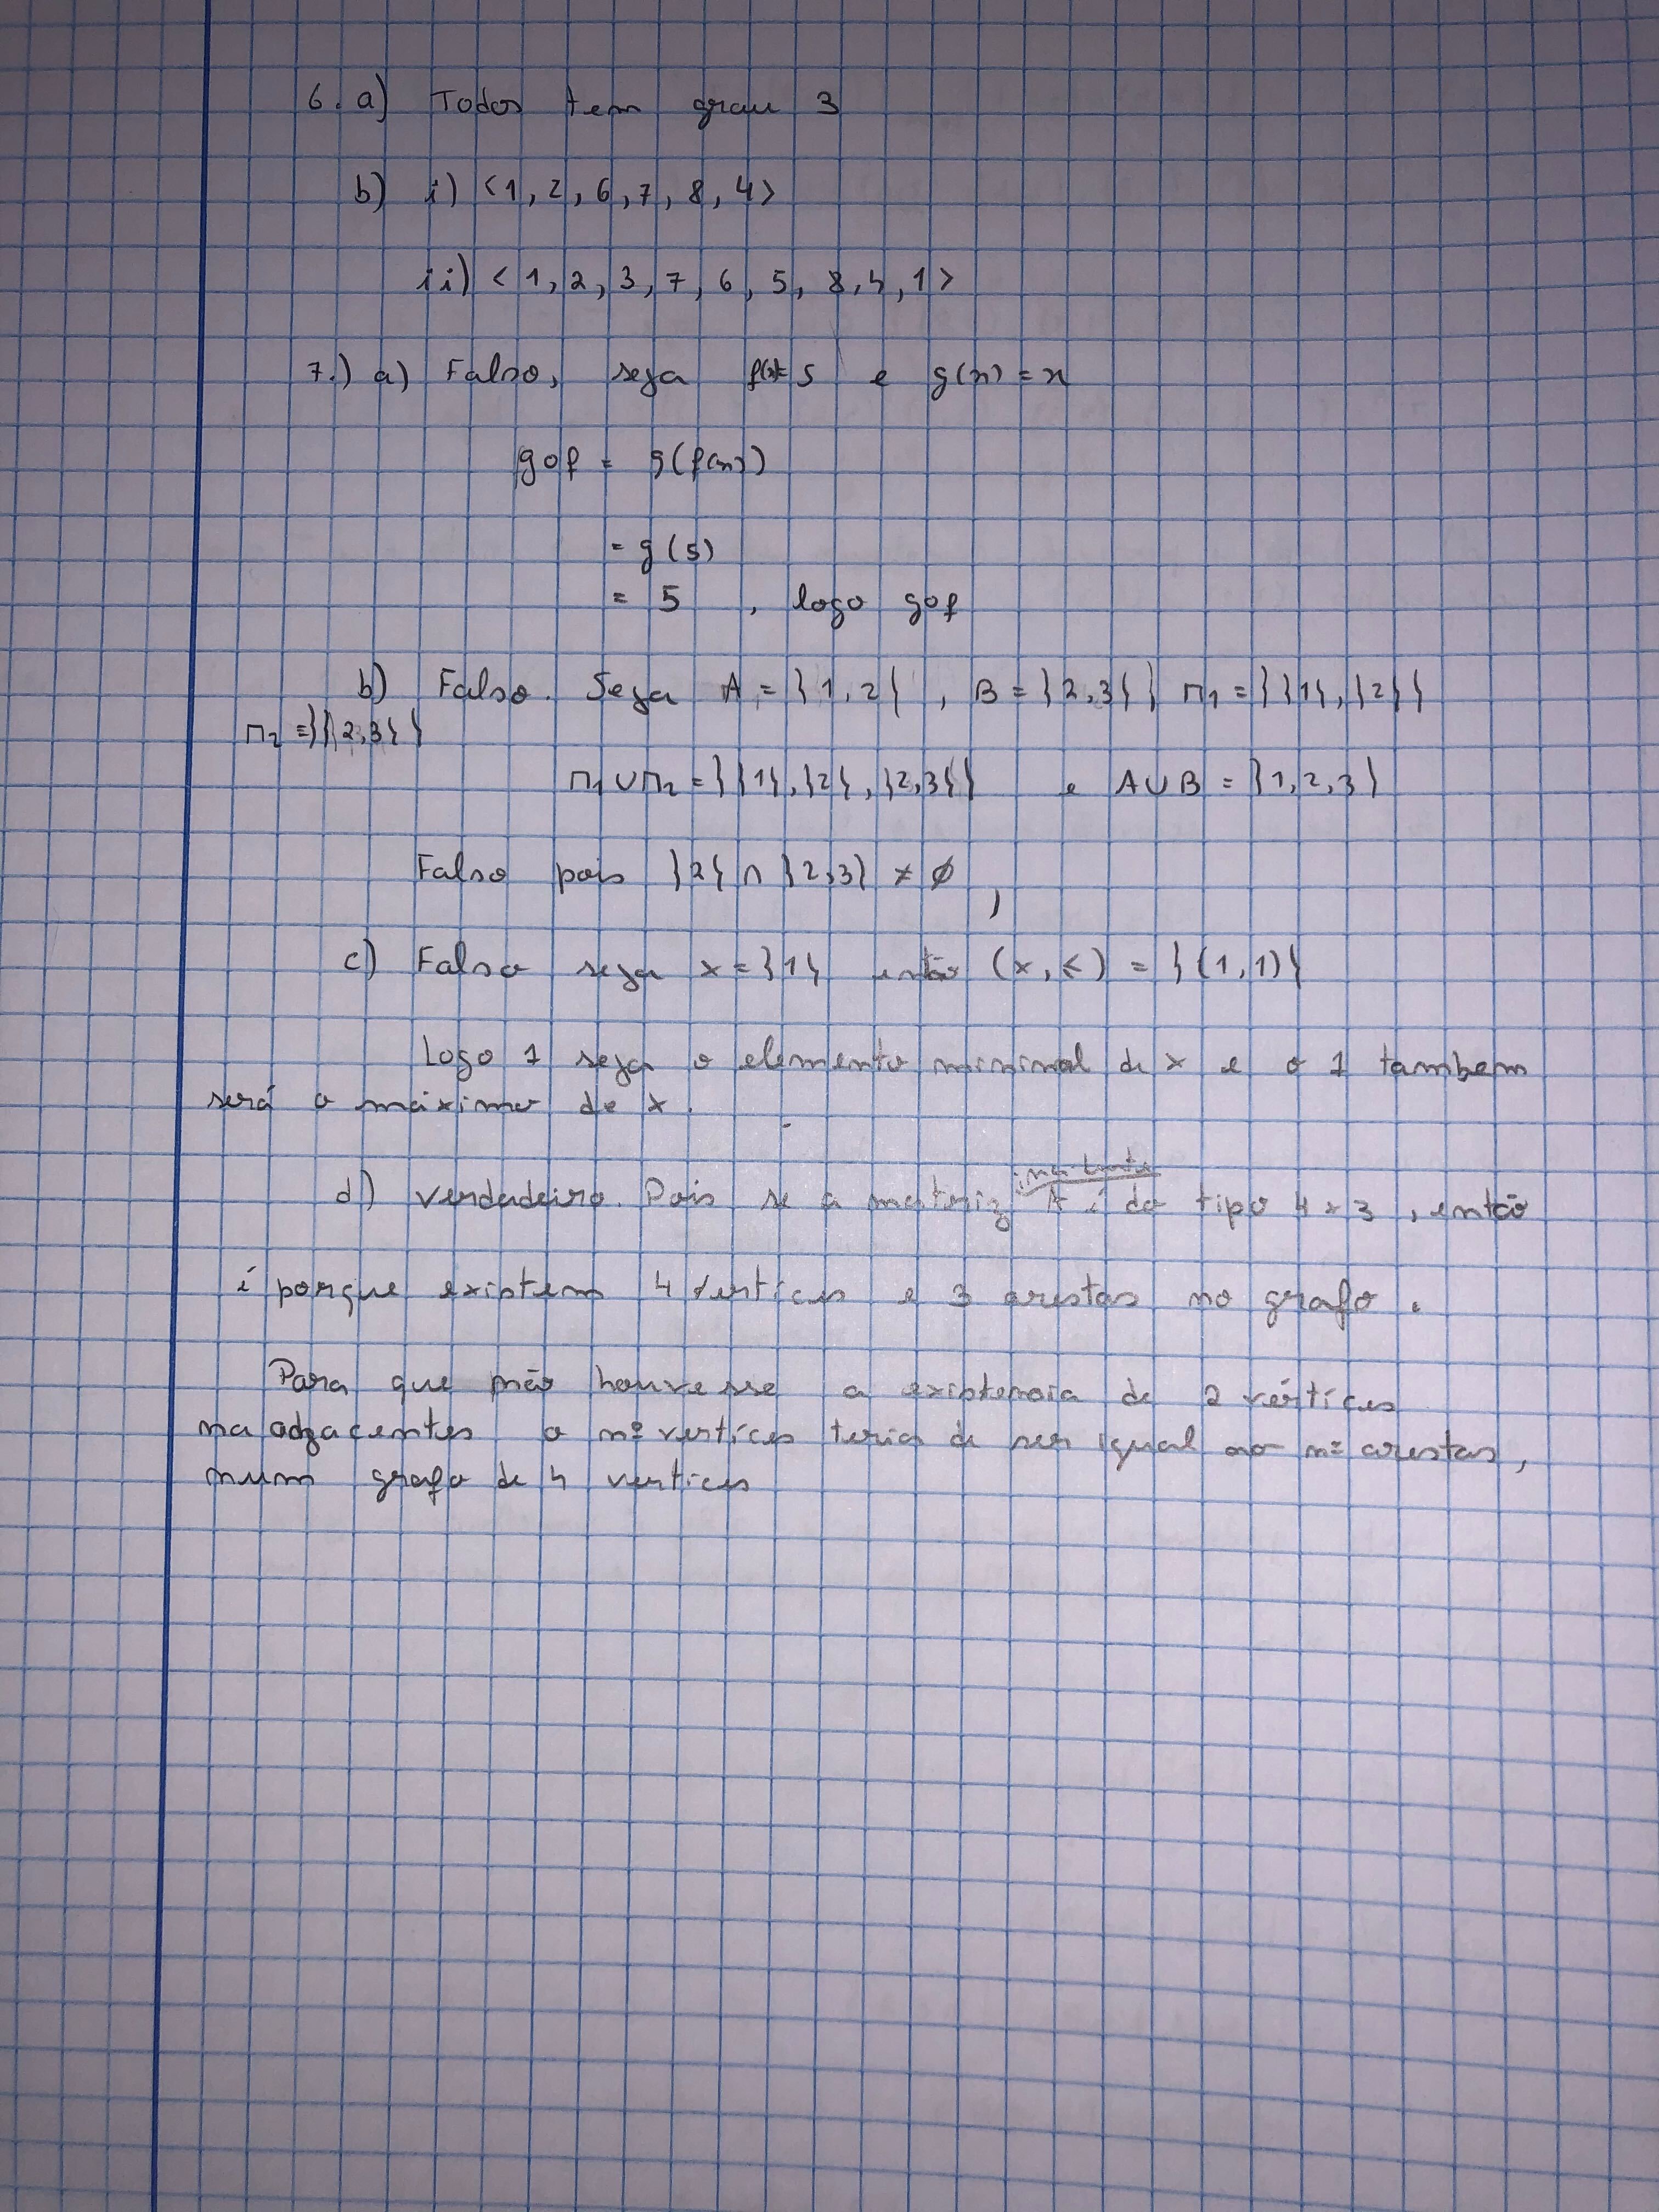 6. a) Todos tem grau 3
b) i) <1, 2, 6, 7, 8, 4>
ii) < 1, 2, 3, 7, 6, 5, 8, 4, 1 >
7.) a) Falso, seja f(x)=5 e g(x) = x
gof = g(f(x))
= g(5)
= 5 , logo gof
b) Falso. Seja A = {1, 2} , B = {2,3} π1 = {{1}, {2}}
π2 = {{2,3}}
π1 ∪ π2 = {{1}, {2}, {2,3}} e A∪B = {1, 2, 3}
Falso pois {2} ∩ {2,3} ≠ ∅,
c) Falso seja x = {1} então (x, ≤) = {(1,1)}
Logo 1 seja o elemento minimal de x e o 1 tambem
será o máximo de x.
d) Verdadeiro. Pois se a matriz A é do tipo 4 x 3 , então
é porque existem 4 vertíces e 3 arestas no grafo.
Para que não houvesse a existencia de 2 vértíces
na adjacentes o nº vertíces teria de ser igual ao nº arestas,
num grafo de 4 vertices